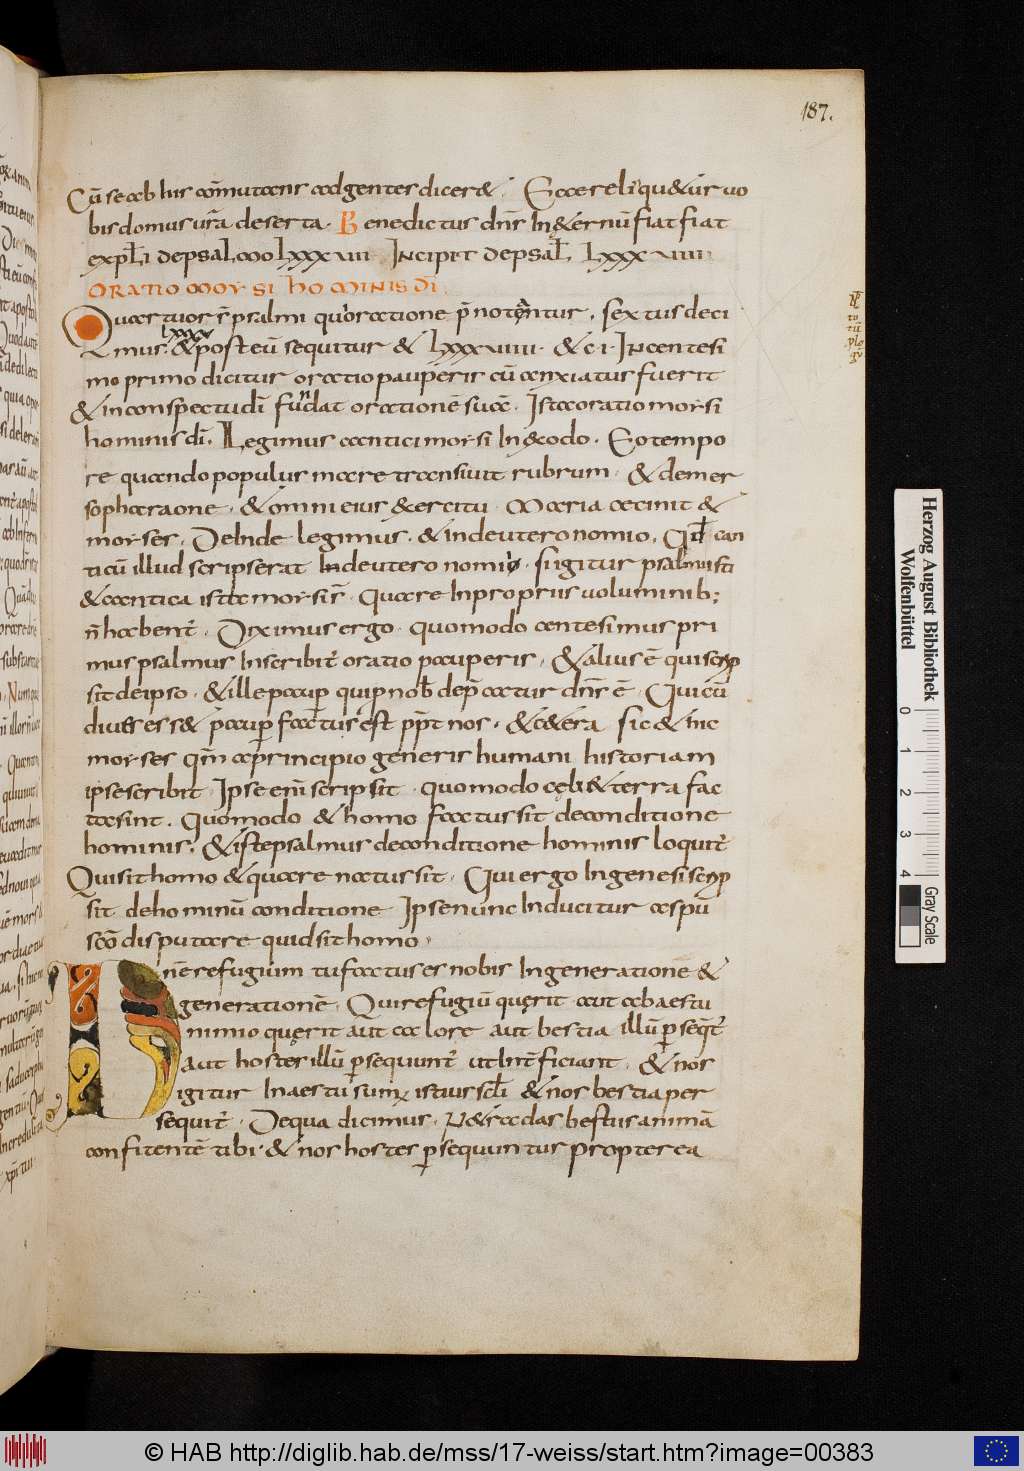 187.
Cū se ab his cōmutans ad gentes dicer& . Ecce reliqu&ur uo
bis domus urā deserta . Benedictus dn̄s In ęternū fiat fiat
expl̄ı de psalmo lxxxviii Incipit de psal̄ lxxxviiii
ORATIO MOYSI HOMINIS DĪ .
Quattuor s̄ psalmi qui oratione p̄notantur . sextus deci
mus . lxxxv & post eū sequitur & lxxxviiii . & c . i . In centesi
mo primo dicitur oratio pauperis cū anxiatus fuerit
& in conspectu dī fundat orationē suā . Ista oratio morsi
hominis dī . Legimus cantici morsi In exodo . Eo tempo
re quando populus mare transiuit rubrum . & demer
so pharaone . & omni eius exercitu . Maria cecinit &
morses . Deinde legimus . & in deuteronomio . Qd̄ can
ticū illud scripserat In deuteronomio . Igitur psalmus iste
& cantica ista morsi s̄ . quare In propriis uoluminib;
n̄ habent̄ . Diximus ergo . quomodo centesimus pri
mus psalmus Inscribit̄ oratio pauperis . & alius ē qui scrip
sit de ipso . & ille paup̄ qui p nob̄ dep̄catur dn̄s ē . Qui cū
diues ess& paup̄ factus est pp̄t nos . & c&era . sic & hic
morses qm̄ a principio generis humani historiam
ipse scribit . Ipse eni̅ scripsit . quomodo cęlū & terra fac
ta sint . Quomodo & homo factus sit de conditione
hominis . & iste psalmus de conditione hominis loquit̄
Qui sit homo & quare natus sit . Qui ergo In genesi scrip
sit de hominū conditione Ipse nunc Inducitur a spū
sc̄o disputare quid sit homo .
nē refugium tu factus es nobis In generatione &
generationē . Qui refugiū quęrit aut ab aestu
nimio quęrit aut calore aut bestia illū p̄ seqt̄
aut hostes illū p̄sequunt̄ ut Int̄ficiant . & nos
igitur In aestu sum; istius sc̄li & nos bestia per
sequit̄ . De qua dicimus . N& radas bestiis animā
confitentē tibi . & nos hostes p̄sequuntur propterea
Herzog August Bibliothek
Wolfenbüttel
0 1 2 3 4
Gray Scale
© HAB http://diglib.hab.de/mss/17-weiss/start.htm?image=00383